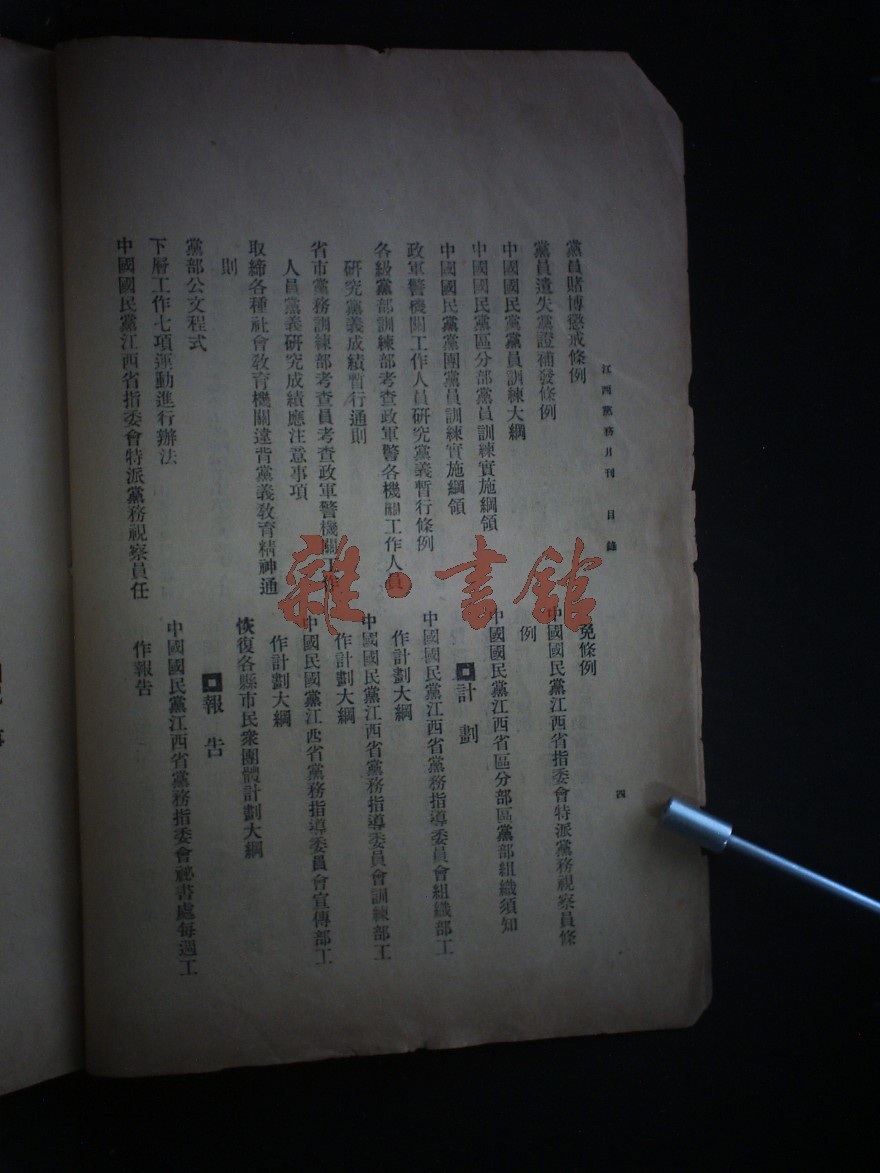 江西黨務月刊　目錄
四
黨員賭博懲戒條例
黨員遺失黨證補發條例
中國國民黨黨員訓練大綱
中國國民黨區分部黨員訓練實施綱領
中國國民黨黨團黨員訓練實施綱領
政軍警機關工作人員研究黨義暫行條例
各級黨部訓練部考查政軍警各機關工作人員
研究黨義成績暫行通則
省市黨務訓練部考查員考查政軍警機關工作
人員黨義研究成績應注意事項
取締各種社會教育機關違背黨義教育精神通
則
黨部公文程式
下層工作七項運動進行辦法
中國國民黨江西省指委會特派黨務視察員任
免條例
中國國民黨江西省指委會特派黨務視察員條
例
中國國民黨江西省區分部區黨部組織須知
計劃
中國國民黨江西省黨務指導委員會組織部工
作計劃大綱
中國國民黨江西省黨務指導委員會訓練部工
作計劃大綱
中國民國黨江西省黨務指導委員會宣傳部工
作計劃大綱
恢復各縣市民衆團體計劃大綱
報告
中國國民黨江西省黨務指委會祕書處每週工
作報告
雜·書館